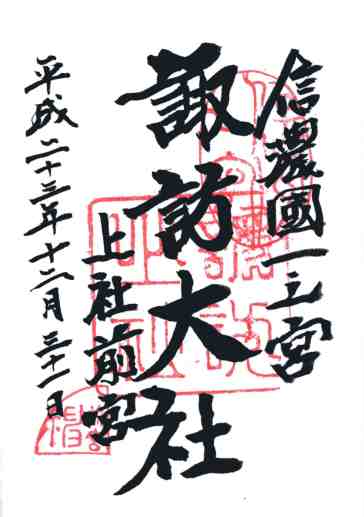 信濃國一之宮
諏訪大社
上社前宮
平成二十三年十二月三十一日